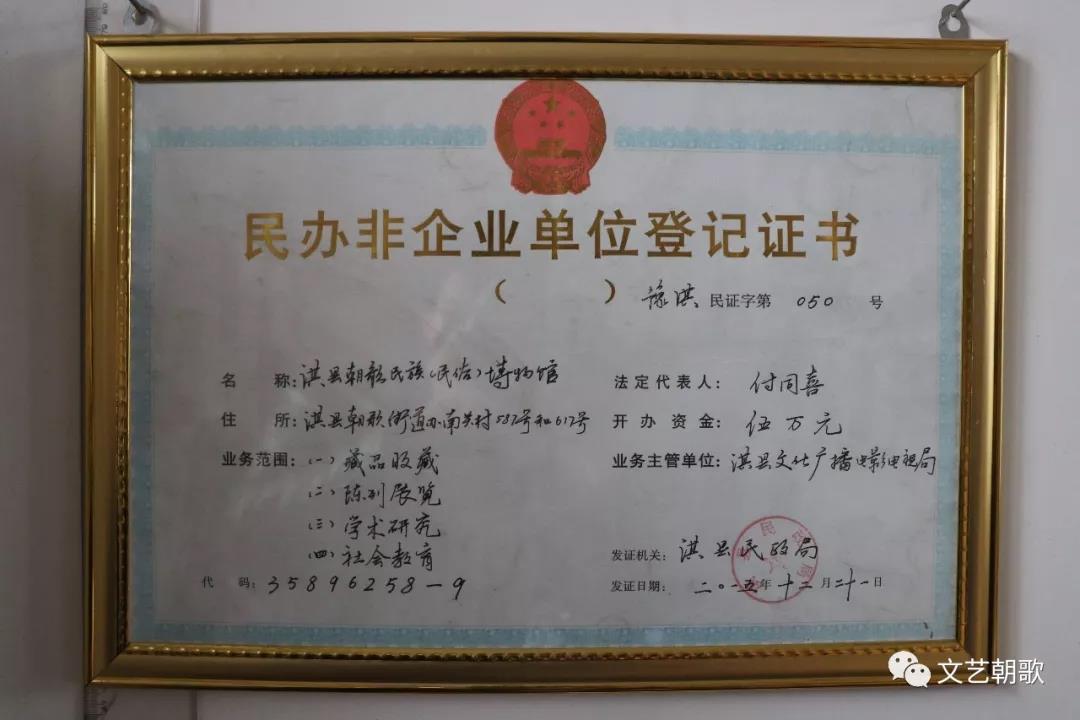 民办非企业单位登记证书
（ ） 豫淇 民证字第 050 号
名 称：淇县朝歌民族（民俗）博物馆
住 所：淇县朝歌街道办南关村587号和617号
业务范围：（一）藏品收藏
（二）陈列展览
（三）学术研究
（四）社会教育
代 码：35896258-9
法定代表人：付同喜
开办资金：伍万元
业务主管单位：淇县文化广播电影电视局
发证机关：淇县民政局
发证日期：二〇一五年十二月二十一日
文艺朝歌